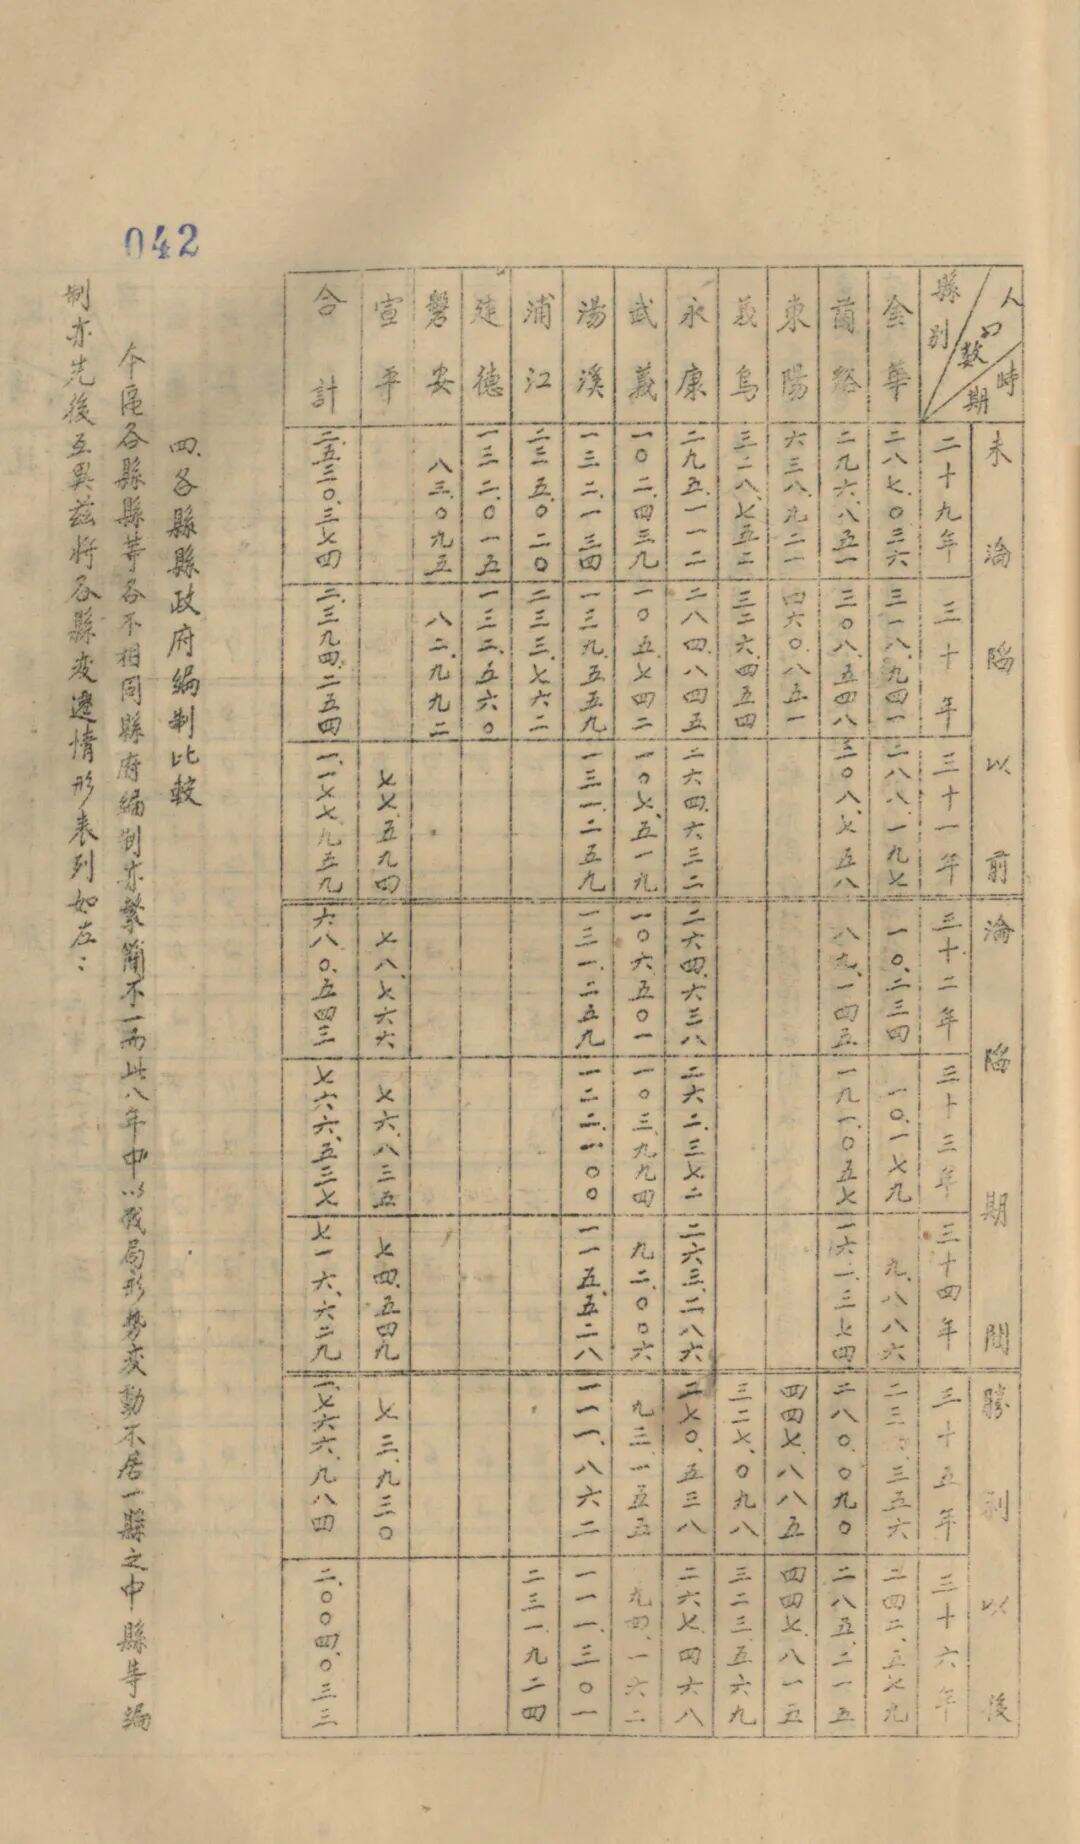 人口數
時期
縣別
未淪陷以前
淪陷期間
勝利以後
二十九年 三十年 三十一年 三十二年 三十三年 三十四年 三十五年 三十六年
金華 二八七.〇三六 三一八.九四一 二八八.一九七 一〇.二三四 一〇.一七九 九.八八六 二三〇.三五六 二四二.五七九
蘭谿 二九六.八五一 三〇八.五四八 三〇八.七五八 八九.一四五 一九一.〇五七 一六一.三七四 二八〇.〇九〇 二八五.二一五
東陽 六三八.九二一 四六〇.八五一 四四七.八八五 四四七.八一五
義烏 三二八.七五二 三二六.四五四 三二七.〇九八 三二三.五六九
永康 二九五.一一二 二八四.八四五 二六四.六三二 二六四.六三八 二六二.三七二 二六三.二八六 二七〇.五三八 二六七.四六八
武義 一〇二.四三九 一〇五.七四二 一〇七.五一九 一〇六.五〇一 一〇三.九九四 九二.〇〇六 九三.一五五 九四.一六二
湯溪 一三二.一三四 一三九.五五九 一三一.二五九 一三一.二五九 一二二.一〇〇 一一五.五二八 一一一.八六二 一一一.三〇一
浦江 二三五.〇二〇 二三三.七六二 二三一.九二四
建德 一三二.〇一五 一三二.五六〇
磐安 八三.〇九五 八二.九九二
宣平 七七.五九四 七八.七六六 七六.八三五 七四.五四九 七三.九三〇
合計 二.五三〇.三七四 二.三九四.二五四 一.一七七.九五九 六八〇.五四三 七六六.五三七 七一六.六二九 一.七六六.九八四 二.〇〇四.〇三三
四、各縣縣政府編制比較
本區各縣縣等各不相同縣府編制亦繁簡不一而此八年中以戰局形勢變動不居一縣之中縣等編
制亦先後互異茲將各縣變遷情形表列如左：
042